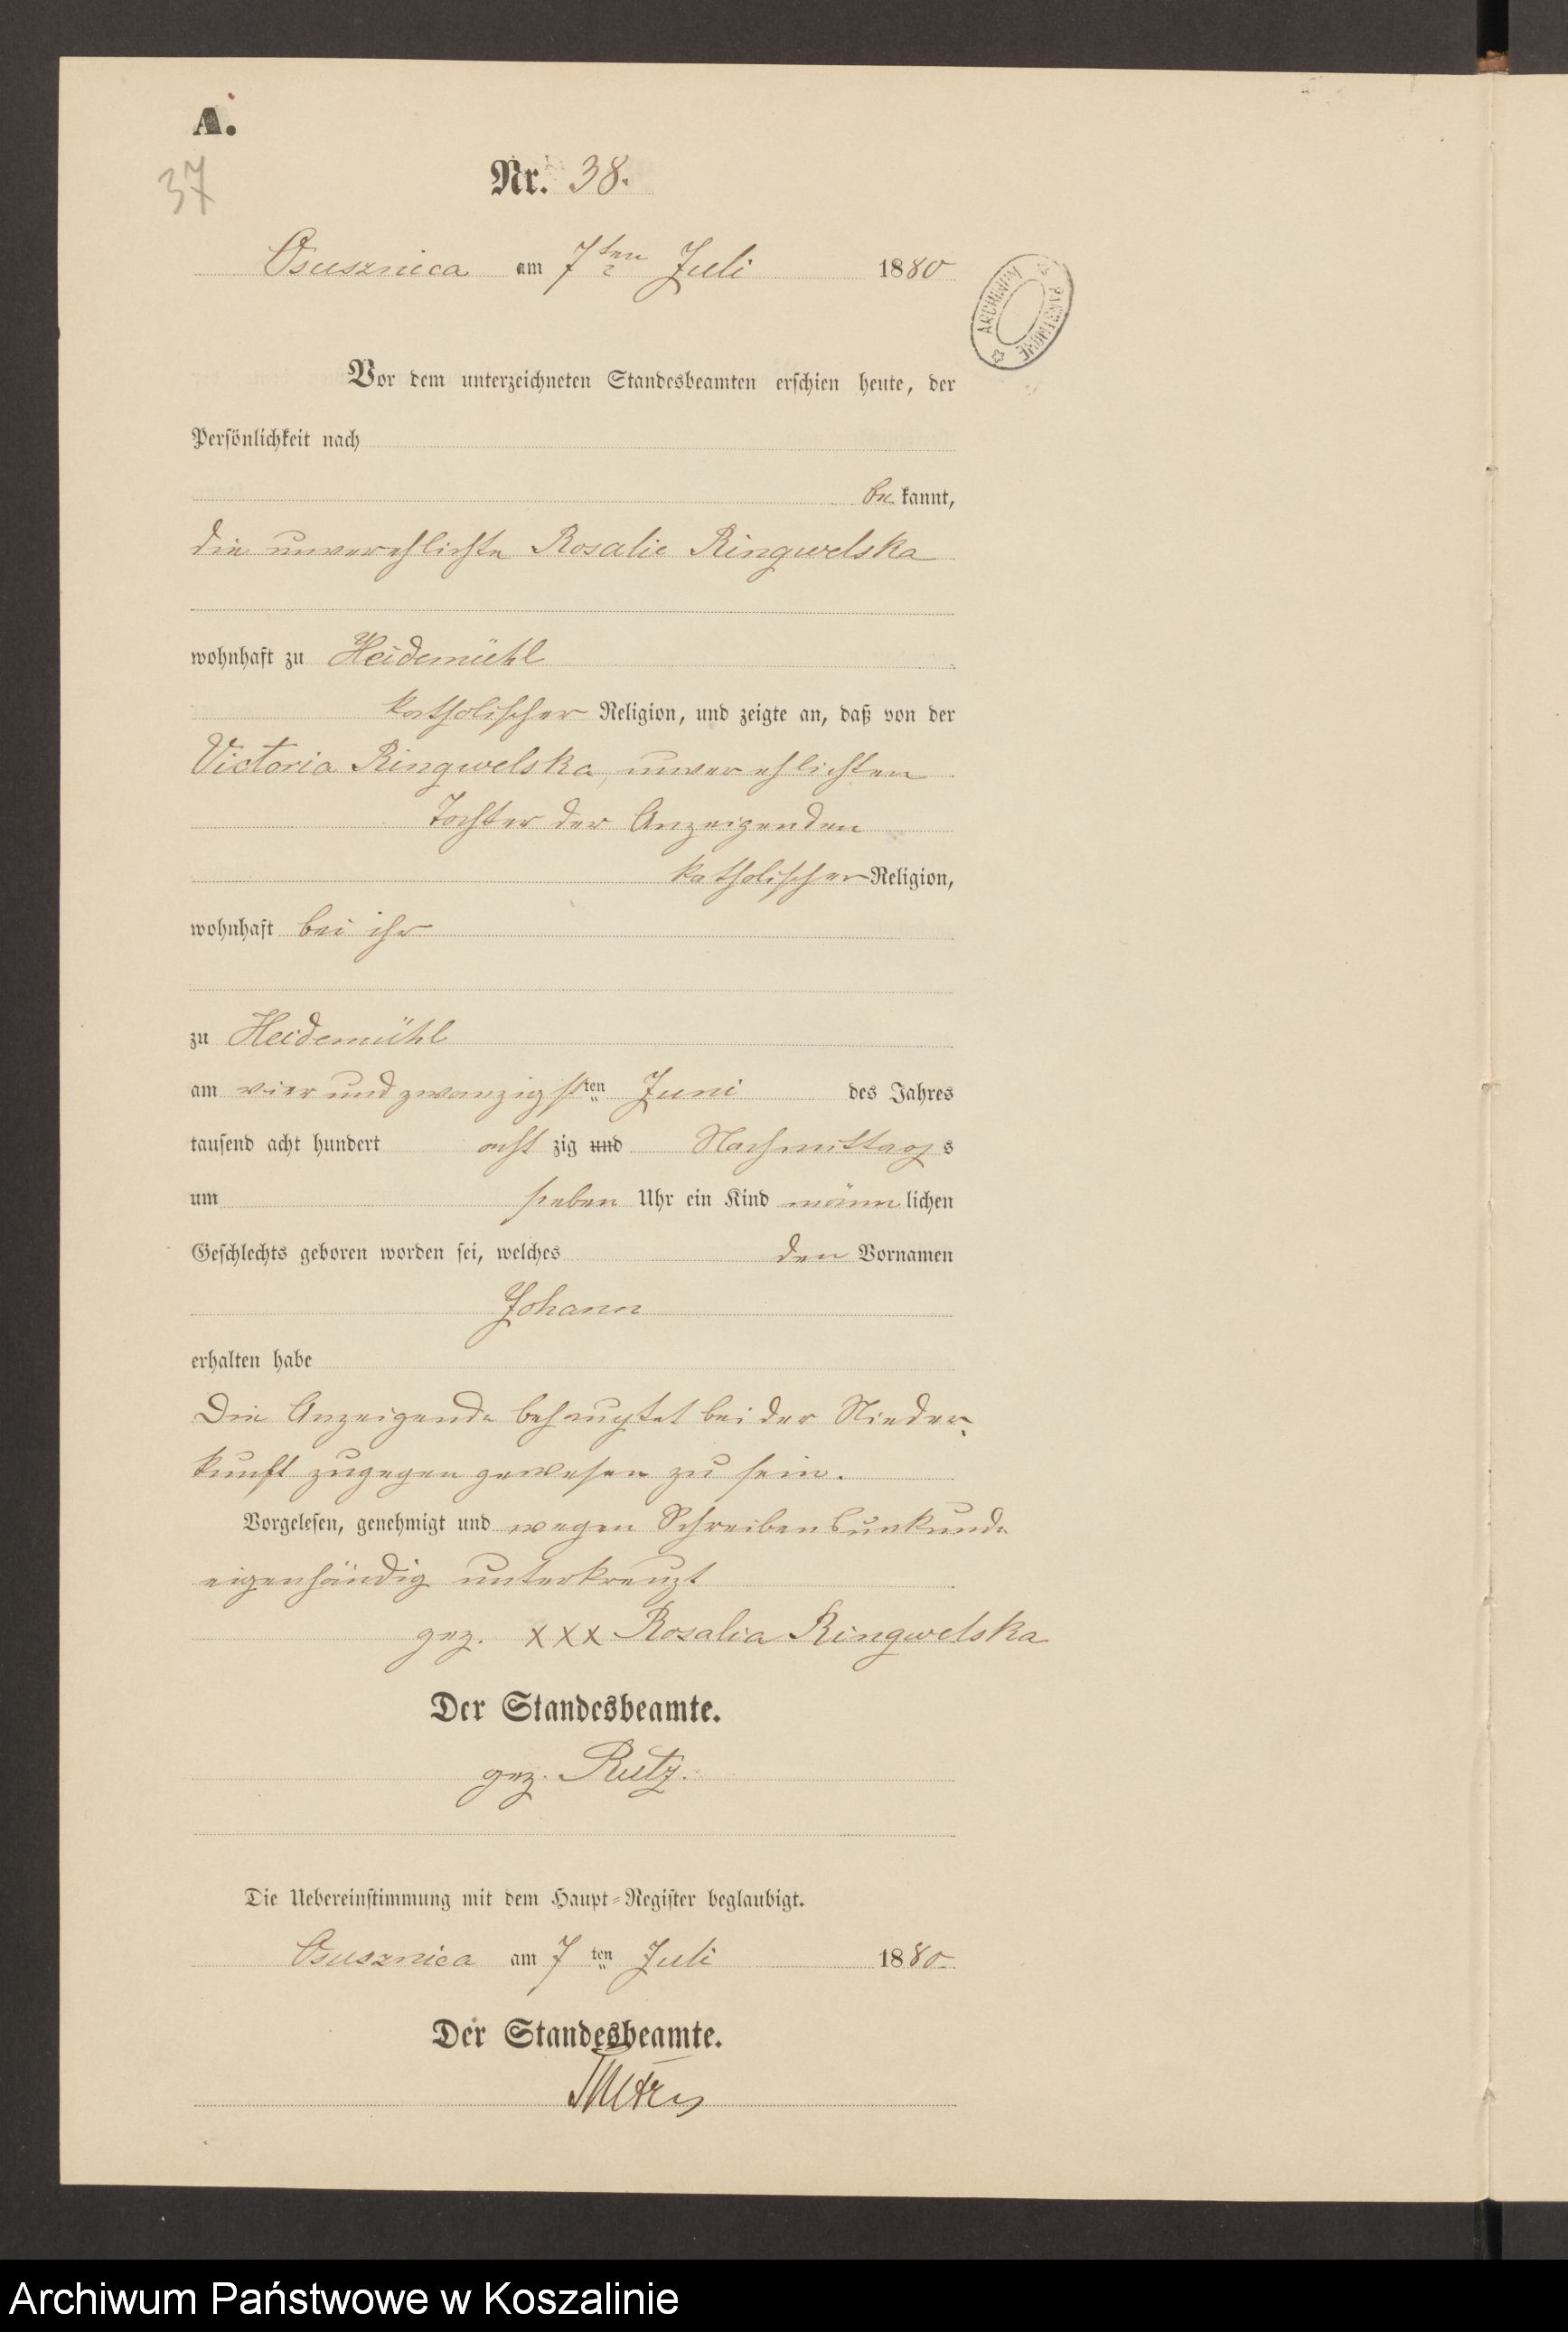 A.
37
Nr. 38.
Osusznica am 7ten Juli 1880
ARCHIWUM PAŃSTWOWE
Vor dem unterzeichneten Standesbeamten erschien heute, der
Persönlichkeit nach
be kannt,
die unverehlichte Rosalie Ringwelska
wohnhaft zu Heidemühl
katholischer Religion, und zeigte an, daß von der
Victoria Ringwelska, unverehlichten
Tochter der Anzeigenden
katholischer Religion,
wohnhaft bei ihr
zu Heidemühl
am vier und zwanzigsten Juni des Jahres
tausend acht hundert acht zig und Nachmittags
um sieben Uhr ein Kind männlichen
Geschlechts geboren worden sei, welches den Vornamen
Johann
erhalten habe
Die Anzeigende behauptet bei der Nieder-
kunft zugegen gewesen zu sein.
Vorgelesen, genehmigt und wegen Schreibensunkunde
eigenhändig unterkreuzt
gez. XXX Rosalia Ringwelska
Der Standesbeamte.
gez. Rutz.
Die Uebereinstimmung mit dem Haupt-Register beglaubigt.
Osusznica am 7ten Juli 1880
Der Standesbeamte.
Archiwum Państwowe w Koszalinie